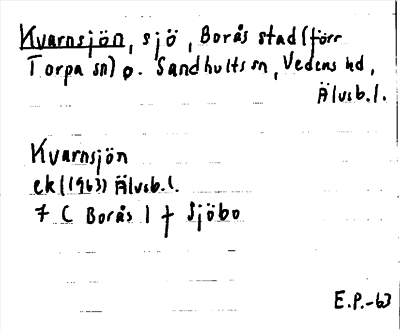 Kvarnsjön, sjö, Borås stad (förr
Torpa sn) o. Sandhults sn, Vedens hd,
Älvsb.l.
Kvarnsjön
ek (1963) Älvsb.l.
7 C Borås 1 f Sjöbo
E.P.-63